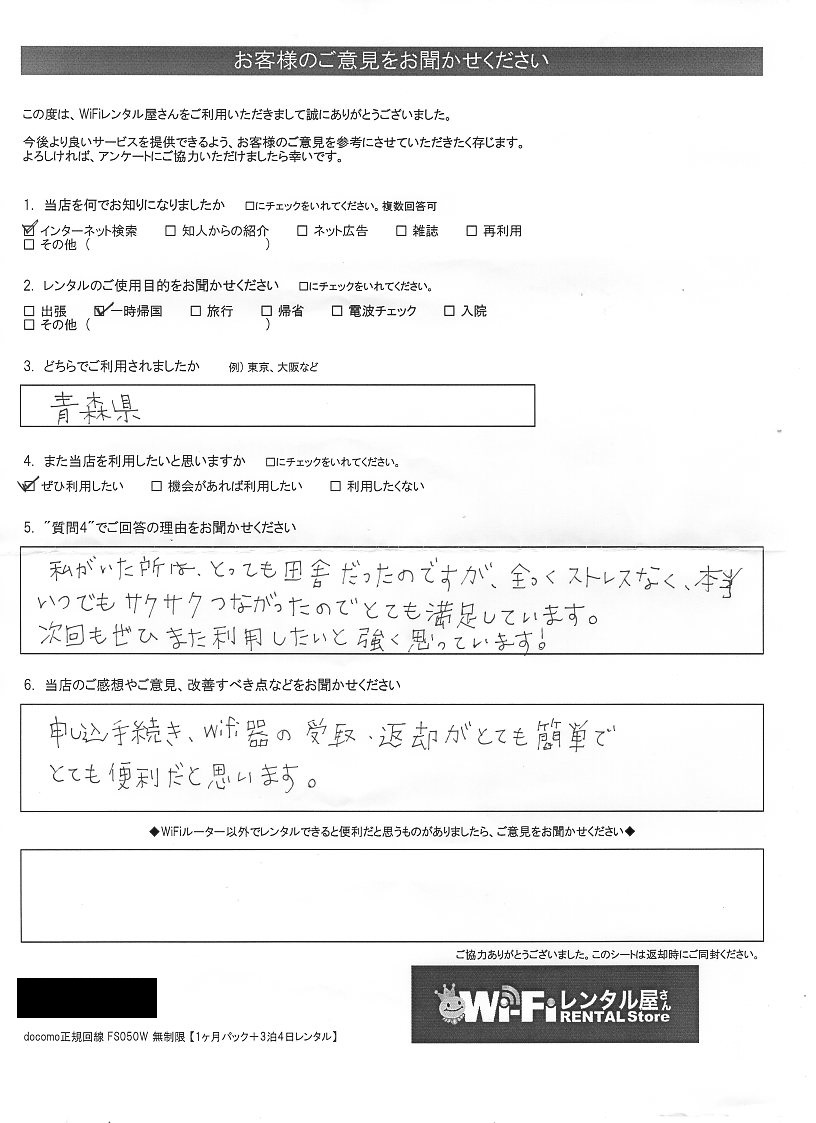 お客様のご意見をお聞かせください
この度は、WiFiレンタル屋さんをご利用いただきまして誠にありがとうございました。
今後より良いサービスを提供できるよう、お客様のご意見を参考にさせていただきたく存じます。
よろしければ、アンケートにご協力いただけましたら幸いです。
1. 当店を何でお知りになりましたか □にチェックをいれてください。複数回答可
☑ インターネット検索 □ 知人からの紹介 □ ネット広告 □ 雑誌 □ 再利用
□ その他 ( )
2. レンタルのご使用目的をお聞かせください □にチェックをいれてください。
□ 出張 ☑ 一時帰国 □ 旅行 □ 帰省 □ 電波チェック □ 入院
□ その他 ( )
3. どちらでご利用されましたか 例)東京、大阪など
青森県
4. また当店を利用したいと思いますか □にチェックをいれてください。
☑ ぜひ利用したい □ 機会があれば利用したい □ 利用したくない
5. "質問4"でご回答の理由をお聞かせください
私がいた所は、とっても田舎だったのですが、全くストレスなく、本当
いつでもサクサクつながったのでとても満足しています。
次回もぜひまた利用したいと強く思っています!
6. 当店のご感想やご意見、改善すべき点などをお聞かせください
申し込手続き、wifi器の受取・返却がとても簡単で
とても便利だと思います。
◆WiFiルーター以外でレンタルできると便利だと思うものがありましたら、ご意見をお聞かせください◆
ご協力ありがとうございました。このシートは返却時にご同封ください。
Wi-Fiレンタル屋さん
RENTAL Store
docomo正規回線 FS050W 無制限【1ヶ月パック+3泊4日レンタル】